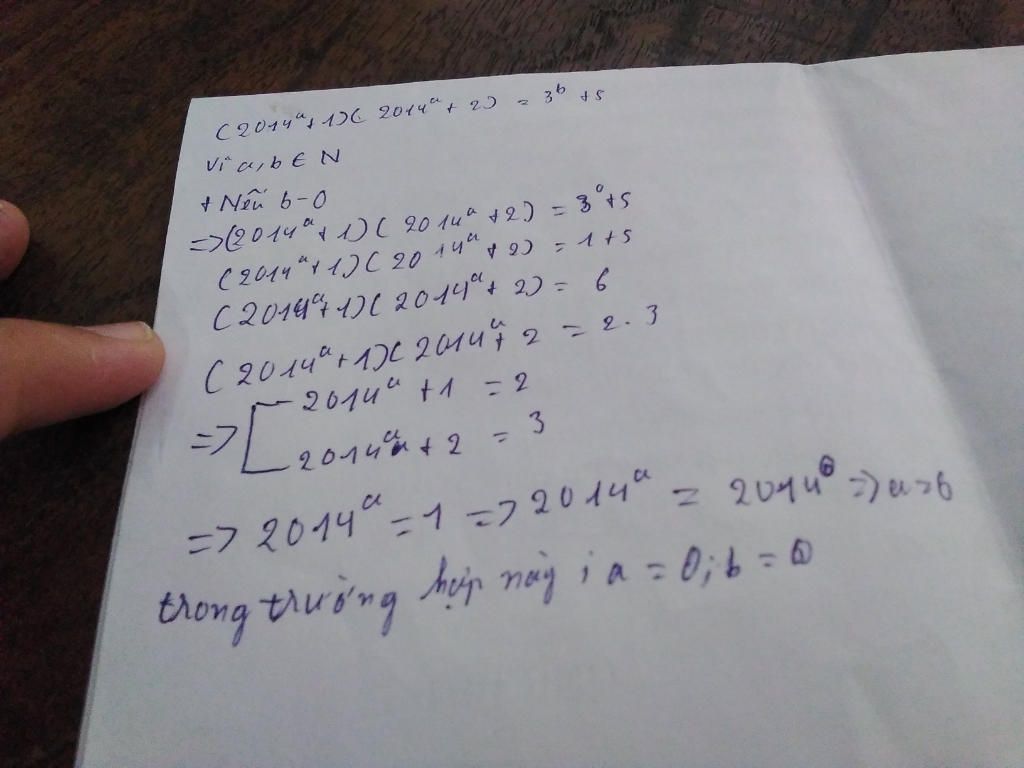 (2014ᵃ+1)(2014ᵃ+2) = 3ᵇ+5
Vì a,b ∈ N
+ Nếu b-0
=>(2014ᵃ+1)(2014ᵃ+2) = 3⁰+5
(2014ᵃ+1)(2014ᵃ+2) = 1+5
(2014ᵃ+1)(2014ᵃ+2) = 6
(2014ᵃ+1)(2014ᵃ+2 = 2.3
=> [ 2014ᵃ+1 = 2
2014ᵃ+2 = 3
=> 2014ᵃ = 1 => 2014ᵃ = 2014⁰ => a=0
trong trường hợp này ; a = 0; b = 0